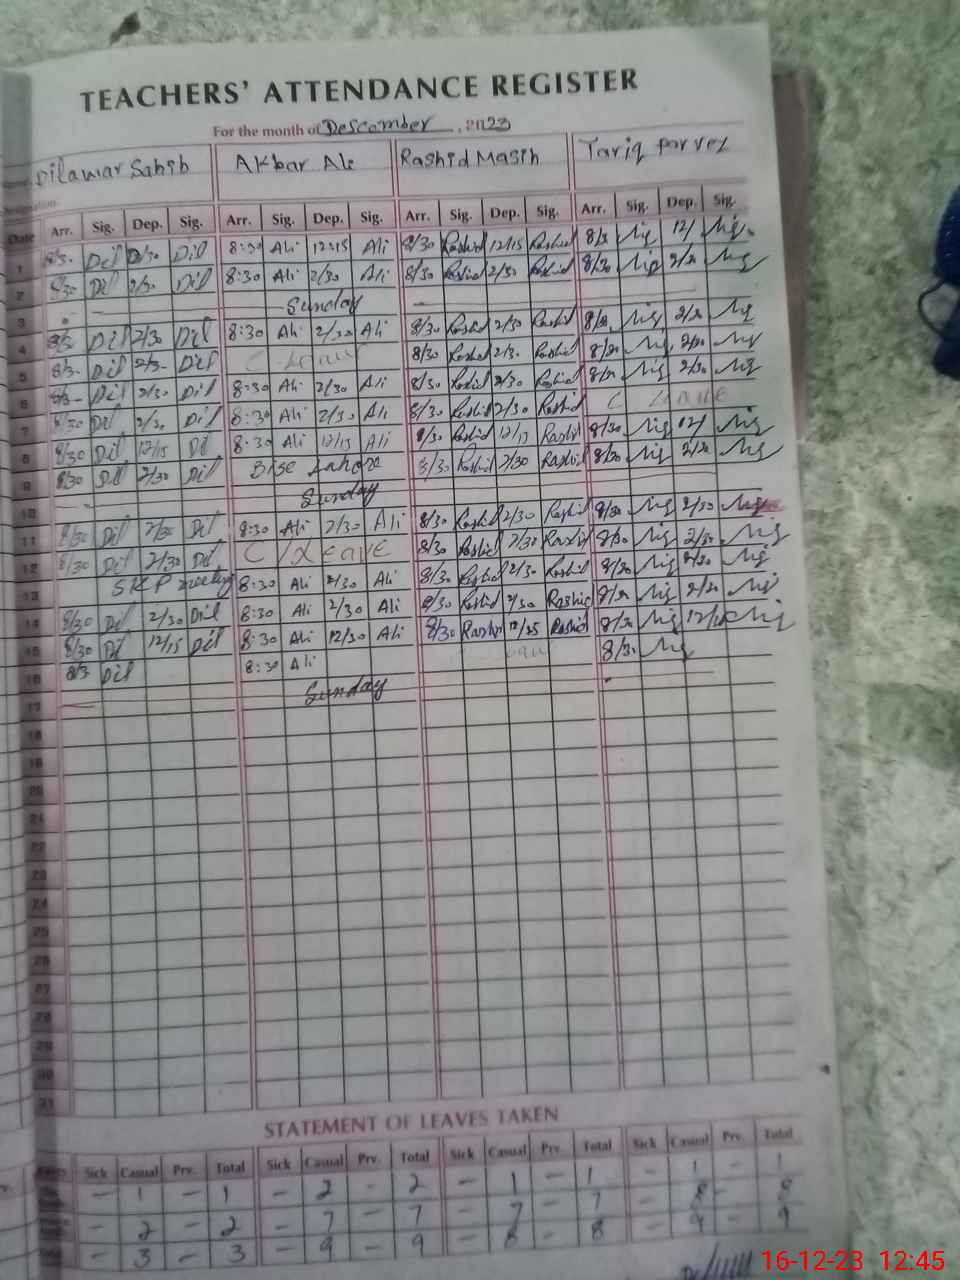 TEACHERS' ATTENDANCE REGISTER
For the month of Descember, 2023
Dilawar Sahib Akbar Ali Rashid Masih Tariq Parvez
Date Arr. Sig. Dep. Sig. Arr. Sig. Dep. Sig. Arr. Sig. Dep. Sig. Arr. Sig. Dep. Sig.
1 8/3- Dil 2/30 Dil 8:30 Ali 12:15 Ali 8/30 Rashid 12/15 Rashid 8/30 12/
2 8/30 Dil 2/30 Dil 8:30 Ali 2/30 Ali 8/30 Rashid 2/30 Rashid 8/30 2/30
3 Sunday
4 8/3- Dil 2/30 Dil 8:30 Ali 2/30 Ali 8/30 Rashid 2/30 Rashid 8/30 2/30
5 8/3- Dil 2/3- Dil C Leave 8/30 Rashid 2/30 Rashid 8/30 2/30
6 8/3- Dil 2/30 Dil 8:30 Ali 2/30 Ali 8/30 Rashid 2/30 Rashid 8/30 2/30
7 8/30 Dil 2/30 Dil 8:30 Ali 2/30 Ali 8/30 Rashid 2/30 Rashid C Leave
8 8/30 Dil 12/15 Dil 8:30 Ali 12/15 Ali 8/30 Rashid 12/15 Rashid 8/30 12/
9 8/30 Dil 2/30 Dil Bise Lahore 8/30 Rashid 2/30 Rashid 8/30 2/30
10 Sunday
11 8/30 Dil 2/30 Dil 8:30 Ali 2/30 Ali 8/30 Rashid 2/30 Rashid 8/30 2/30
12 8/30 Dil 2/30 Dil C/Leave 8/30 Rashid 2/30 Rashid 8/30 2/30
13 SKP meeting 8:30 Ali 2/30 Ali 8/30 Rashid 2/30 Rashid 8/30 2/30
14 8/30 Dil 2/30 Dil 8:30 Ali 2/30 Ali 8/30 Rashid 2/30 Rashid 8/30 2/30
15 8/30 Dil 12/15 Dil 8:30 Ali 12/30 Ali 8/30 Rashid 12/35 Rashid 8/30
16 8/3- Dil 8:30 Ali 8/30
17 Sunday
18
19
20
21
22
23
24
25
26
27
28
29
30
31
STATEMENT OF LEAVES TAKEN
Sick Casual Prv. Total Sick Casual Prv. Total Sick Casual Prv. Total Sick Casual Prv. Total
- 1 - 1 - 2 - 2 - 1 - 1 - 1 - 1
- 2 - 2 - 7 - 7 - 7 - 7 - 8 - 8
- 3 - 3 - 9 - 9 - 8 - 8 - 9 - 9
16-12-23 12:45